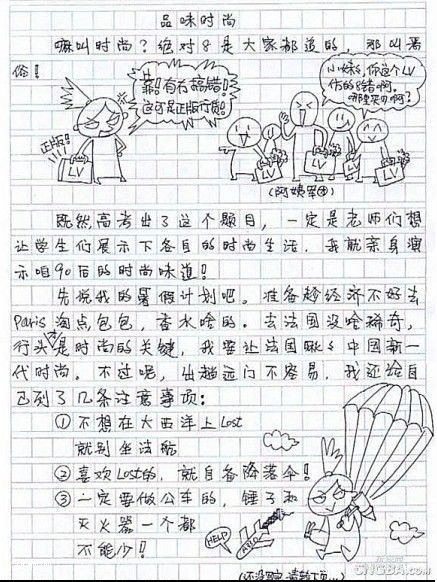 品味时尚
嘛叫时尚？绝对8是大家都道的，那叫恶
俗！
正版！
LV
靠！有冇搞错！
这可是正版行货！
LV
LV
小妹，你这个LV
仿的8错啊。
哪里买的啊？
LV
LV
(阿姨军团)
既然高考出了这个题目，一定是老师们想
让学生们展示下各自的时尚生活，我就亲身演
示咱90后的时尚味道！
先说我的暑假计划吧。准备趁经济不好去
Paris淘点包包，香水啥的。去法国没啥稀奇，
行头才是时尚的关键，我要让法国瞅瞅中国新一
代时尚。不过呢，出趟远门不容易，我还给自
己列了几条注意事项：
①不想在大西洋上Lost
就别坐法航
②喜欢Lost的，就自备降落伞！
③一定要做公车的，锤子和
灭火器一个都
不能少！
HELP
(还没写完,请翻下页…)
CNGBA.com